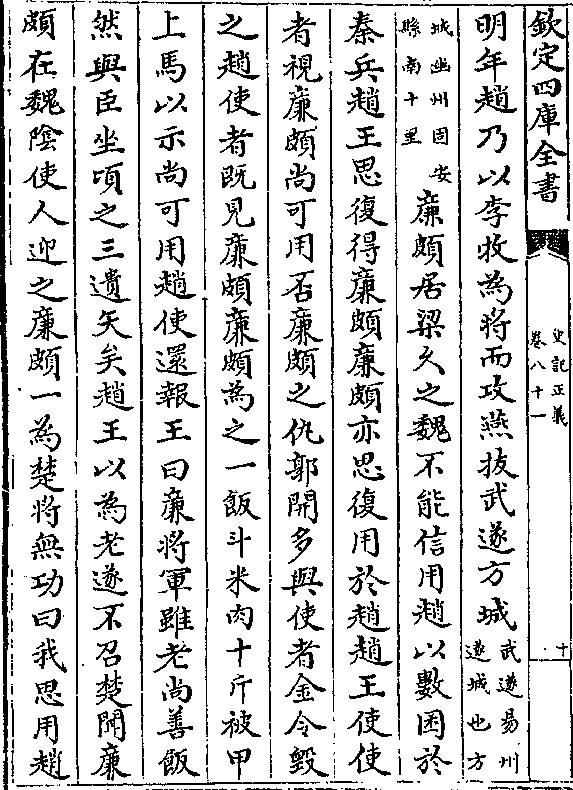 欽定四庫全書
史記正義
卷八十一
十
明年趙乃以李牧為將而攻燕拔武遂方城武遂易州遂城也方
城幽州固安縣南十里廉頗居梁久之魏不能信用趙以數困於
秦兵趙王思復得廉頗廉頗亦思復用於趙趙王使使
者視廉頗尚可用否廉頗之仇郭開多與使者金令毀
之趙使者既見廉頗廉頗為之一飯斗米肉十斤被甲
上馬以示尚可用趙使還報王曰廉將軍雖老尚善飯
然與臣坐頃之三遺矢矣趙王以為老遂不召楚聞廉
頗在魏陰使人迎之廉頗一為楚將無功曰我思用趙